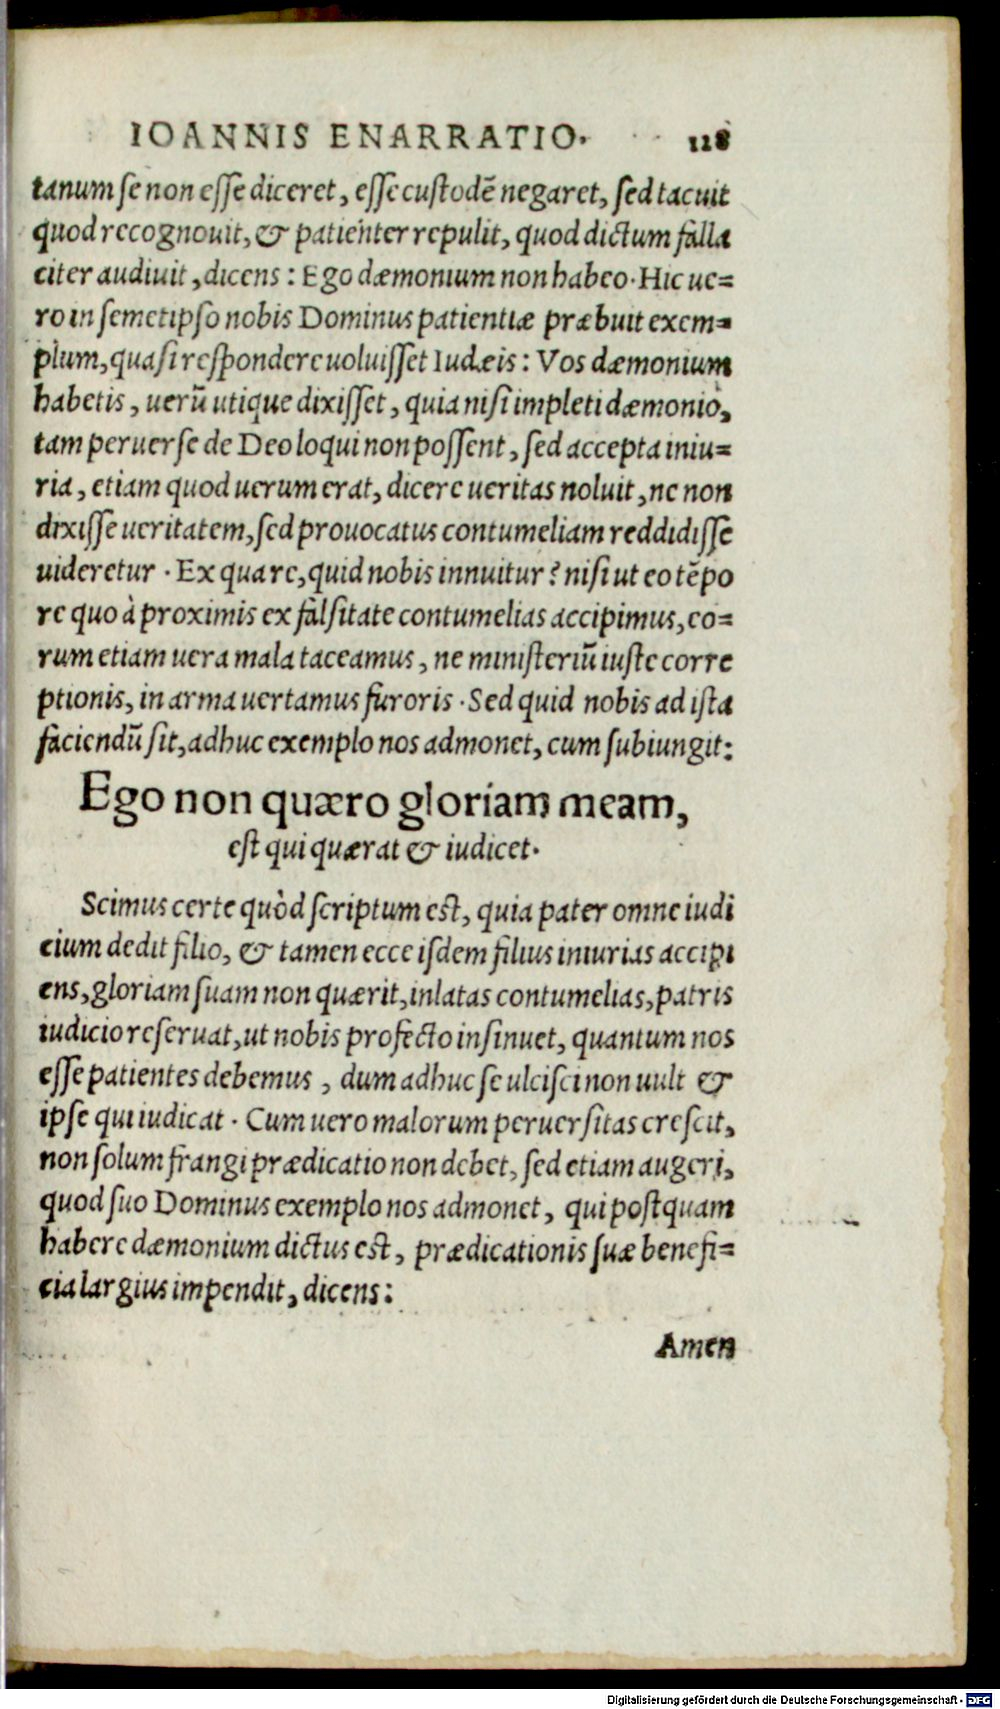 IOANNIS ENARRATIO. 118
tanum se non esse diceret, esse custodē negaret, sed tacuit
quod recognouit, & patienter repulit, quod dictum falla
citer audiuit, dicens: Ego dæmonium non habeo. Hic ue=
ro in semetipso nobis Dominus patientiæ præbuit exem=
plum, quasi respondere uoluisset Iudæis: Vos dæmonium
habetis, uerū utique dixisset, quia nisi impleti dæmonio,
tam peruerse de Deo loqui non possent, sed accepta iniu=
ria, etiam quod uerum erat, dicere ueritas noluit, ne non
dixisse ueritatem, sed prouocatus contumeliam reddidisse
uideretur. Ex qua re, quid nobis innuitur? nisi ut eo tēpo
re quo à proximis ex falsitate contumelias accipimus, eo=
rum etiam uera mala taceamus, ne ministeriū iuste corre
ptionis, in arma uertamus furoris. Sed quid nobis ad ista
faciendū sit, adhuc exemplo nos admonet, cum subiungit:
Ego non quæro gloriam meam,
est qui quærat & iudicet.
Scimus certe quòd scriptum est, quia pater omne iudi
cium dedit filio, & tamen ecce isdem filius iniurias accipi
ens, gloriam suam non quærit, inlatas contumelias, patris
iudicio reseruat, ut nobis profecto insinuet, quantum nos
esse patientes debemus, dum adhuc se ulcisci non uult &
ipse qui iudicat. Cum uero malorum peruersitas crescit,
non solum frangi prædicatio non debet, sed etiam augeri,
quod suo Dominus exemplo nos admonet, qui postquam
habere dæmonium dictus est, prædicationis suæ benefi=
cia largius impendit, dicens:
Amen
Digitalisierung gefördert durch die Deutsche Forschungsgemeinschaft - DFG